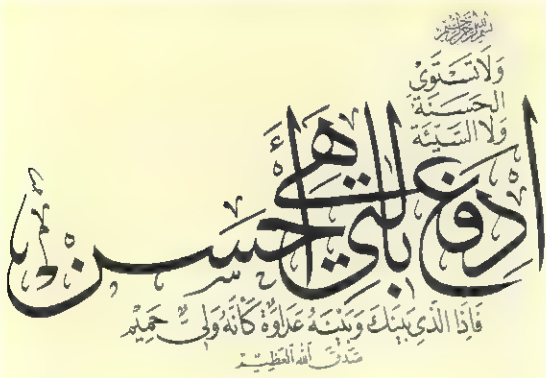 بسم الله الرحمن الرحيم
وَلَا تَسْتَوِي
الْحَسَنَةُ
وَلَا السَّيِّئَةُ
ادْفَعْ بِالَّتِي هِيَ أَحْسَنُ
فَإِذَا الَّذِي بَيْنَكَ وَبَيْنَهُ عَدَاوَةٌ كَأَنَّهُ وَلِيٌّ حَمِيمٌ
صَدَقَ اللهُ الْعَظِيمُ